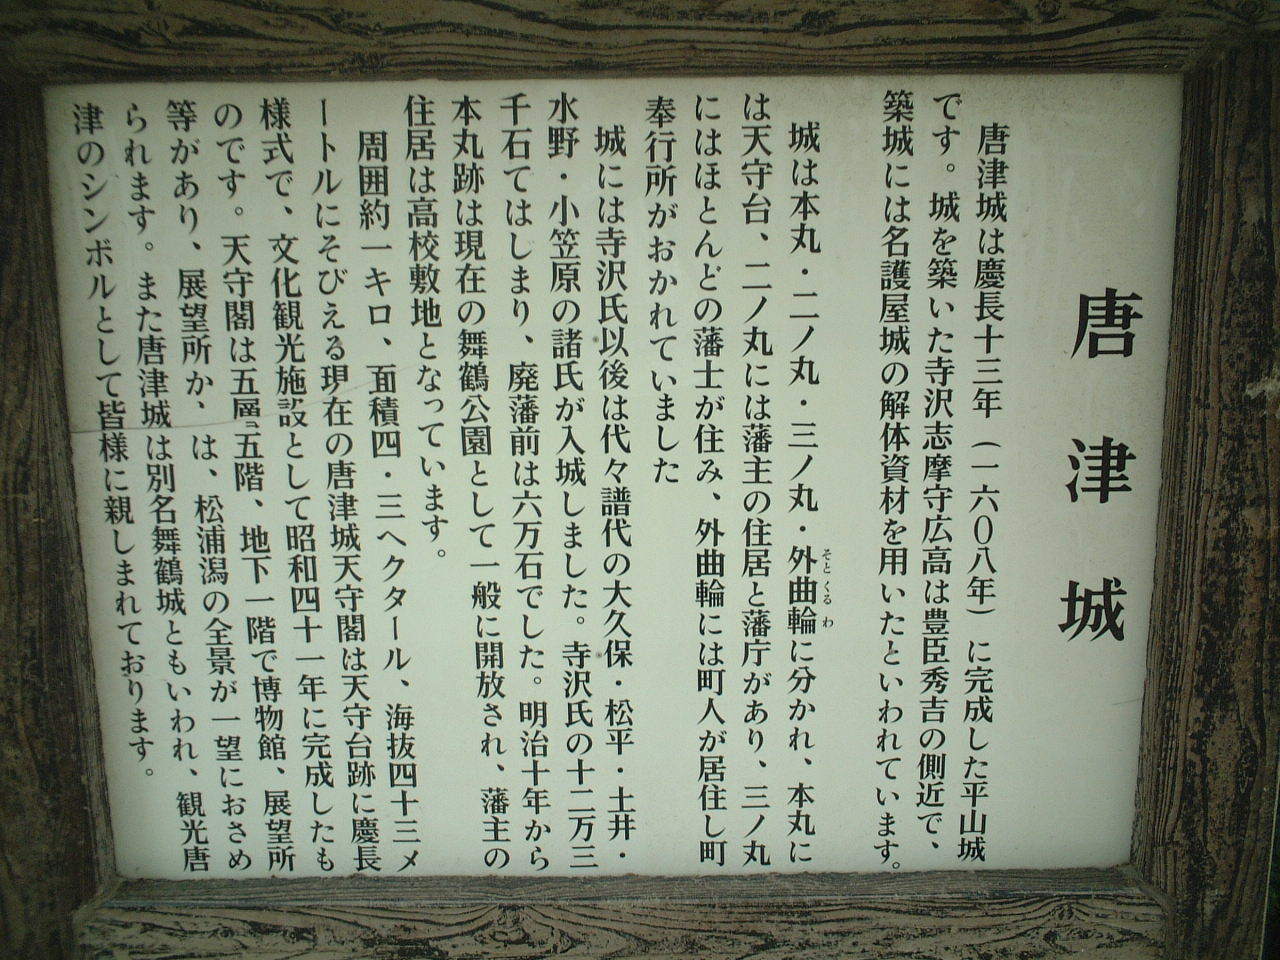 唐津城
唐津城は慶長十三年（一六〇八年）に完成した平山城
です。城を築いた寺沢志摩守広高は豊臣秀吉の側近で、
築城には名護屋城の解体資材を用いたといわれています。
城は本丸・二ノ丸・三ノ丸・外曲輪に分かれ、本丸に
そとくるわ
は天守台、二ノ丸には藩主の住居と藩庁があり、三ノ丸
にはほとんどの藩士が住み、外曲輪には町人が居住し町
奉行所がおかれていました
城には寺沢氏以後は代々譜代の大久保・松平・土井・
水野・小笠原の諸氏が入城しました。寺沢氏の十二万三
千石てはしまり、廃藩前は六万石でした。明治十年から
本丸跡は現在の舞鶴公園として一般に開放され、藩主の
住居は高校敷地となっています。
周囲約一キロ、面積四・三ヘクタール、海抜四十三メ
ートルにそびえる現在の唐津城天守閣は天守台跡に慶長
様式で、文化観光施設として昭和四十一年に完成したも
のです。天守閣は五層五階、地下一階で博物館、展望所
等があり、展望所か、は、松浦潟の全景が一望におさめ
られます。また唐津城は別名舞鶴城ともいわれ、観光唐
津のシンボルとして皆様に親しまれております。